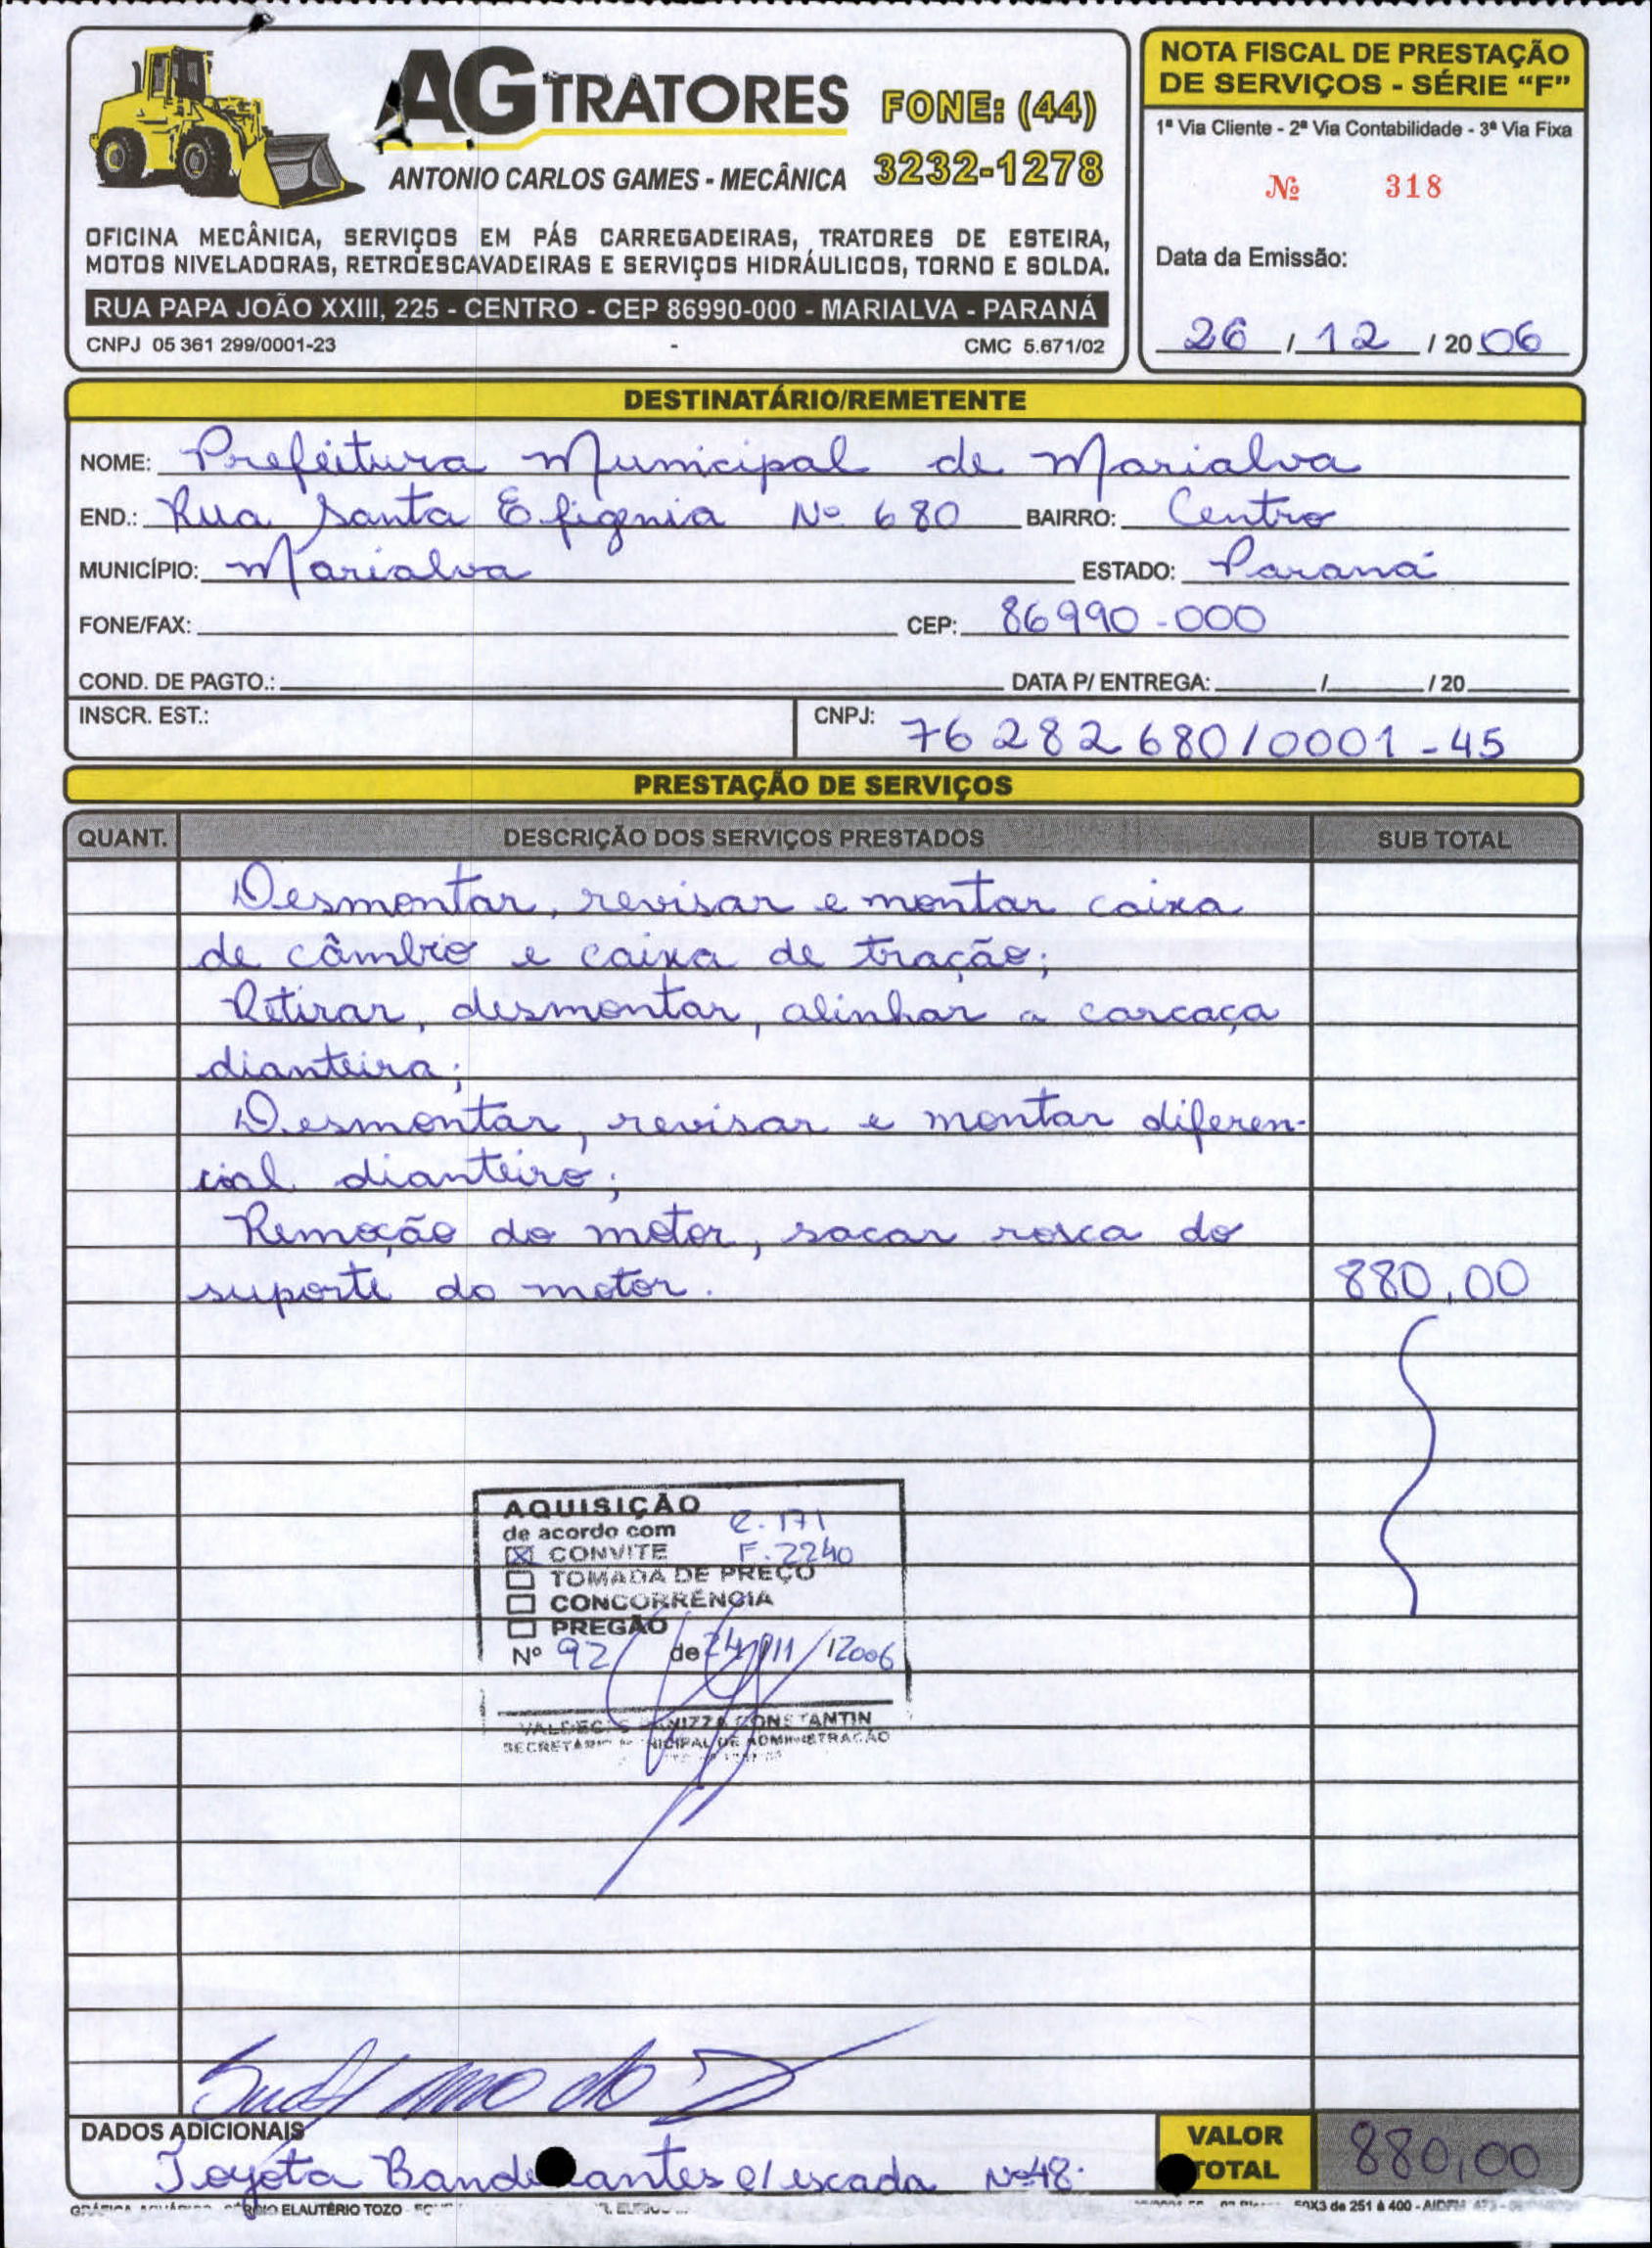 AG TRATORES FONE: (44)
ANTONIO CARLOS GAMES - MECÂNICA 3232-1278
OFICINA MECÂNICA, SERVIÇOS EM PÁS CARREGADEIRAS, TRATORES DE ESTEIRA,
MOTOS NIVELADORAS, RETROESCAVADEIRAS E SERVIÇOS HIDRÁULICOS, TORNO E SOLDA.
RUA PAPA JOÃO XXIII, 225 - CENTRO - CEP 86990-000 - MARIALVA - PARANÁ
CNPJ 05 361 299/0001-23 - CMC 5.671/02
NOTA FISCAL DE PRESTAÇÃO
DE SERVIÇOS - SÉRIE “F”
1ª Via Cliente - 2ª Via Contabilidade - 3ª Via Fixa
Nº 318
Data da Emissão:
26 / 12 / 20 06
DESTINATÁRIO/REMETENTE
NOME: Prefeitura Municipal de Marialva
END.: Rua Santa Efigenia Nº 680 BAIRRO: Centro
MUNICÍPIO: Marialva ESTADO: Paraná
FONE/FAX: CEP: 86990-000
COND. DE PAGTO.: DATA P/ ENTREGA: / / 20
INSCR. EST.: CNPJ: 76 282 680/0001-45
PRESTAÇÃO DE SERVIÇOS
QUANT. DESCRIÇÃO DOS SERVIÇOS PRESTADOS SUB TOTAL
Desmontar, revisar e montar caixa
de câmbio e caixa de tração;
Retirar, desmontar, alinhar a carcaça
dianteira;
Desmontar, revisar e montar diferen-
cial dianteiro;
Remoção do motor, sacar rosca do
suporte do motor. 880,00
AQUISIÇÃO
de acordo com C. 171
☒ CONVITE F. 2240
☐ TOMADA DE PREÇO
☐ CONCORRÊNCIA
☐ PREGÃO
Nº 92 de 24/11/2006
CONSTANTIN
SECRETARIO MUNICIPAL DE ADMINISTRAÇÃO
DADOS ADICIONAIS
Toyota Bandeirantes c/ escada Nº 48.
VALOR
TOTAL 880,00
ELAUTÉRIO TOZO
50X3 de 251 à 400 - AIDFM